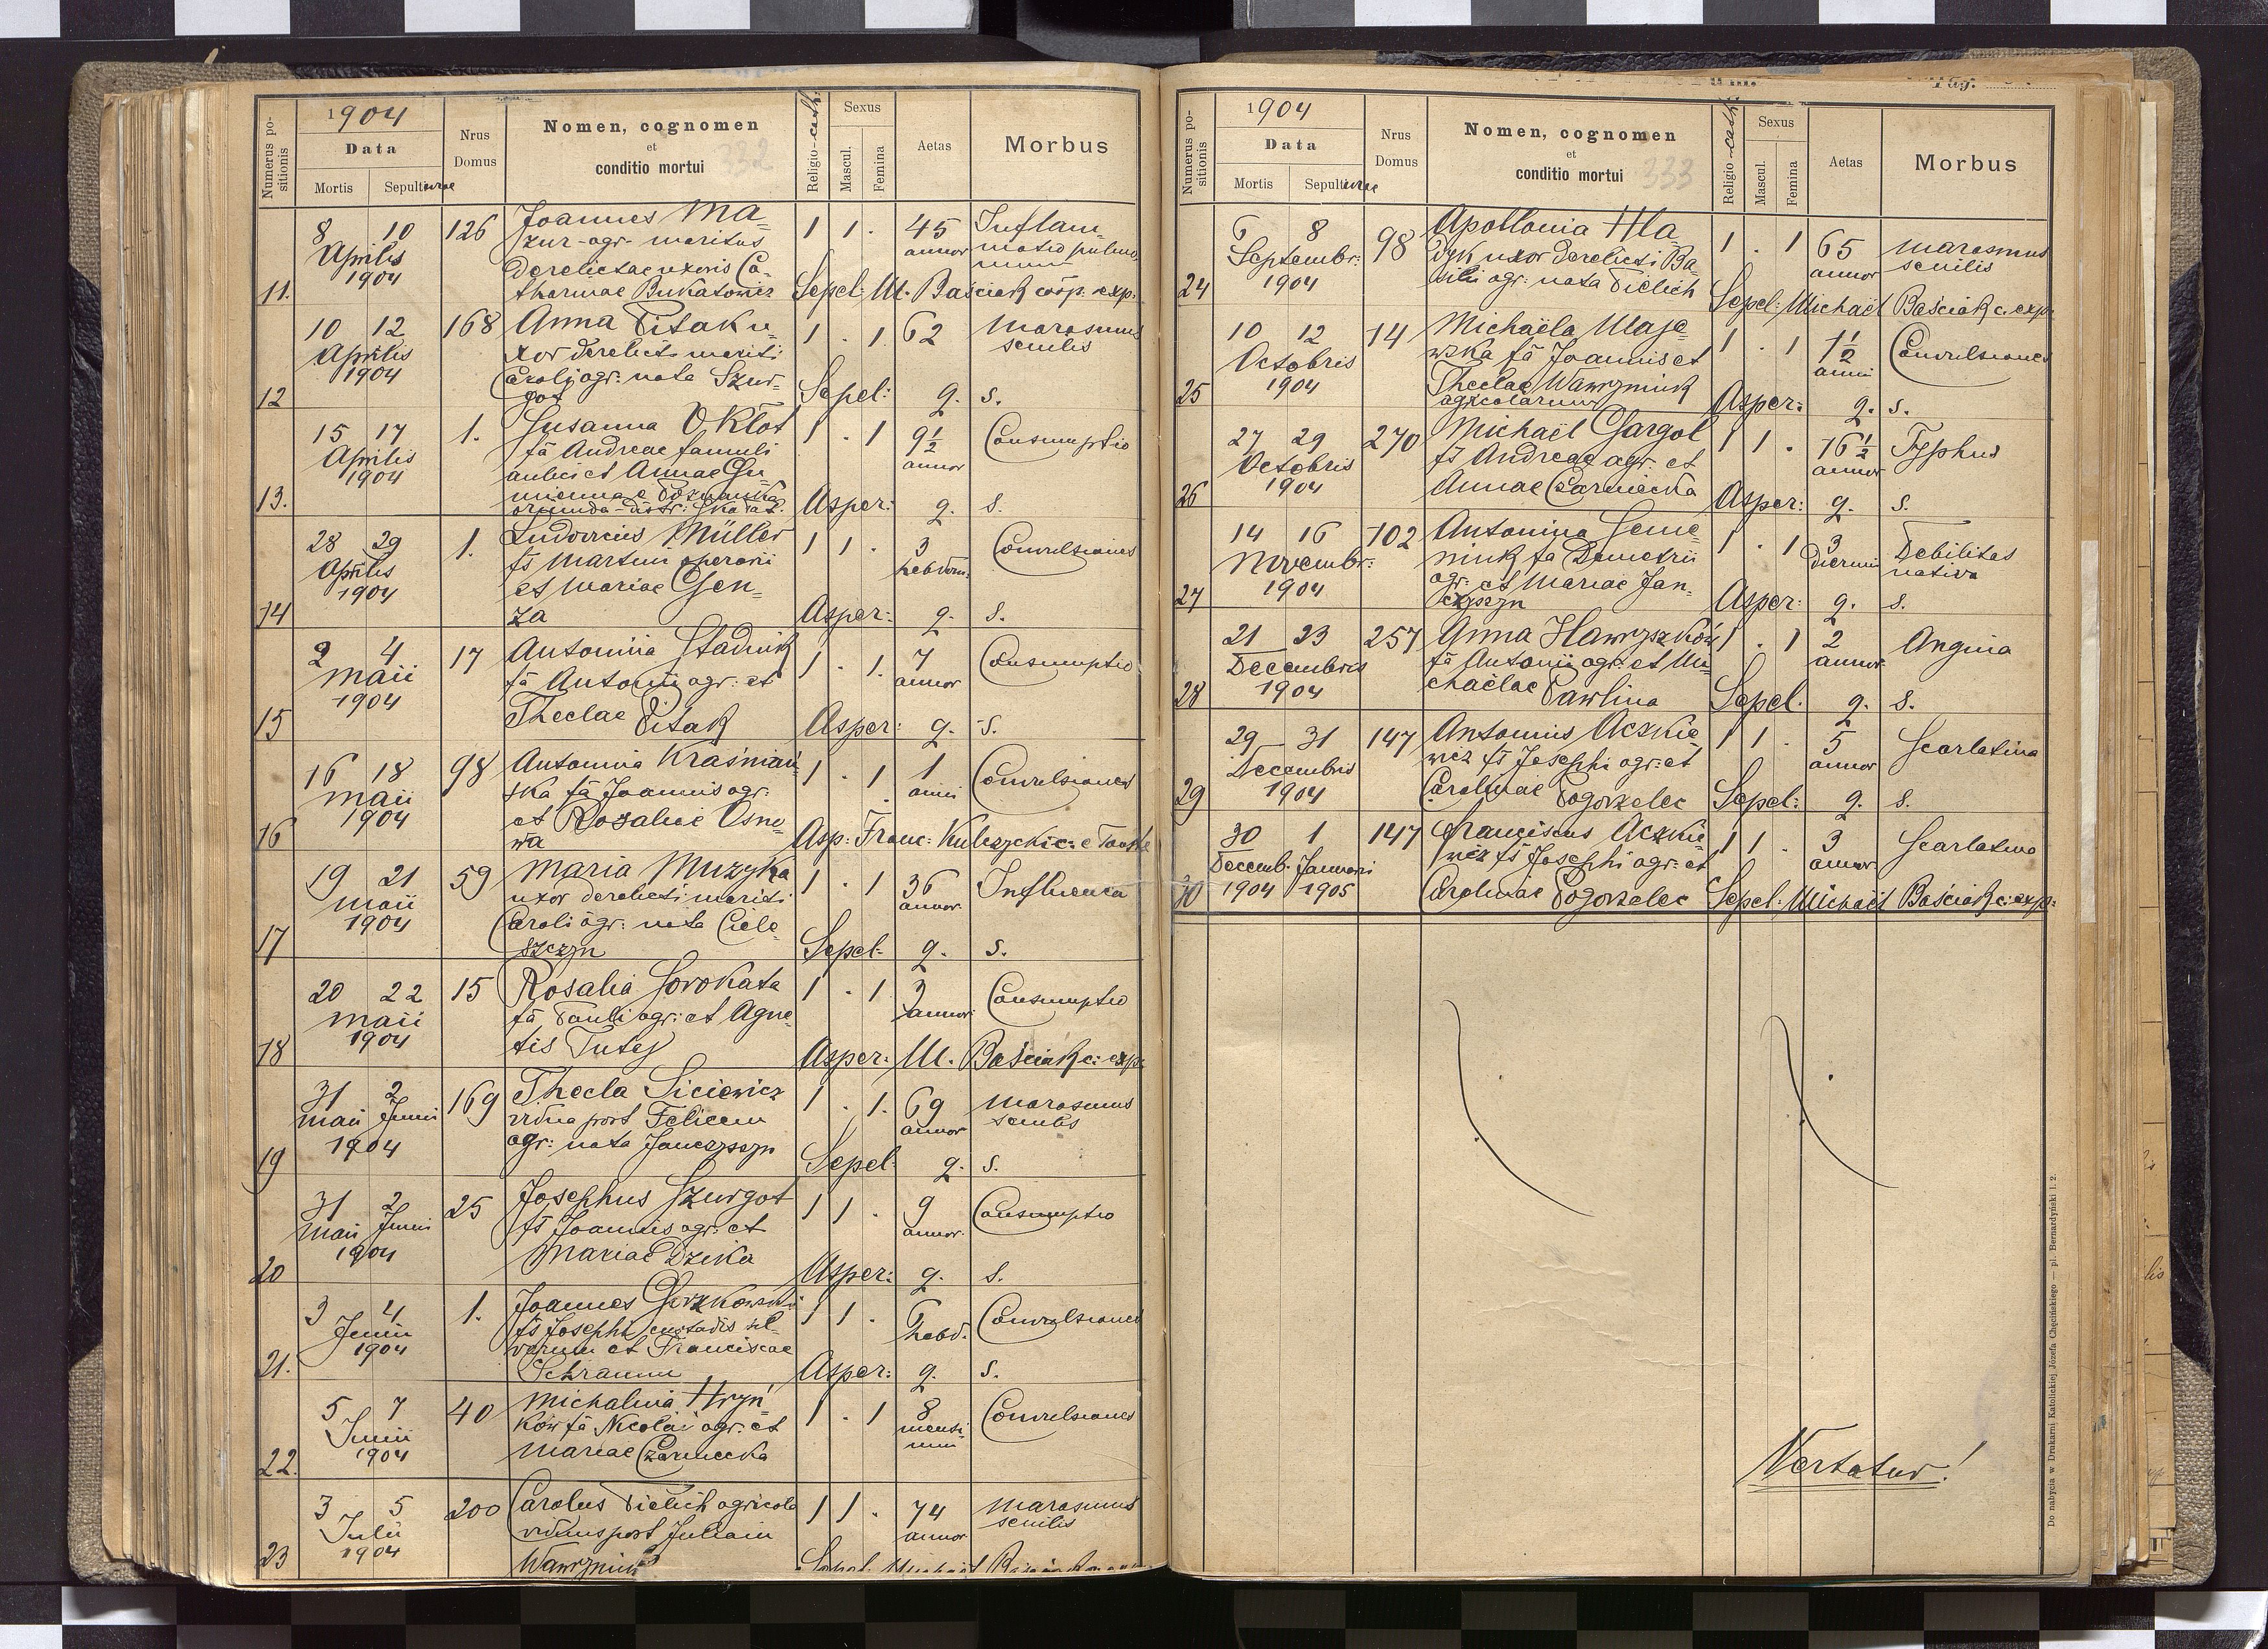 Numerus positionis
1904
Data
Mortis
Sepulturae
Nrus
Domus
Nomen, cognomen
et
conditio mortui
332
Religio-cath.
Sexus
Mascul.
Femina
Aetas
Morbus
11.
8 10
Aprilis
1904
126
Joannes Ma-
zur agr. maritus
derelictae uxoris Ca-
tharinae Bukatowicz
1 1 .
45
annor
Inflam-
matio pulmo-
num
Sepel: M. Baściak coop. exp.
12
10 12
Aprilis
1904
168
Anna Pitak u-
xor derelicti mariti
Caroli agr: nata Szur-
got
1 . 1
62
Marasmus
senilis
Sepel: q. s.
13.
15 17
Aprilis
1904
1.
Susanna Okłot
fa Andreae famuli
aulici et Annae Gu-
mienna e Poznanka
oriunda distr: Skałat.
1 . 1
9 1/2
annor
Consumptio
Asper: q. s.
14
28 29
Aprilis
1904
1.
Ludovicus Müller
fs Martini operarii
et Mariae Gen-
za
1 1 .
3
hebdom:
Convulsiones
Asper: q. s.
15
2 4
Maii
1904
17
Antonina Stadnik
fa Antonii agr: et
Theclae Pitak
1 . 1.
7
annor
Consumptio
Asper: q. s.
16
16 18
Maii
1904
98
Antonina Kraśniań-
ska fa Joannis agr:
et Rosaliae Osno-
wa
1 . 1
1
anni
Convulsiones
Asp: Franc: Kulczycki c: e Touste
17
19 21
Maii
1904
59
Maria Muzyka
uxor derelicti mariti
Caroli agr: nata Ciele-
szczyn
1 . 1
36
annor
Influenca
Sepel. q. s.
18
20 22
Maii
1904
15
Rosalia Sorokata
fa Pauli agr: et Agne-
tis Tutej
1 . 1
2
annor:
Consumptio
Asper: M. Baściak c: exp:
19
31 2
Maii Junii
1904
169
Thecla Siciewicz
vidua post Felicem
agr: nata Janczyszyn
1 . 1.
69
annor
Marasmus
senilis
Sepel. q. s.
20
31 2
Maii Junii
1904
25
Josephus Szurgot
fs Joannis agr: et
Mariae Dzika
1 1 .
9
annor.
Consumptio
Asper: q. s.
21.
3 4
Junii
1904
1.
Joannes Gorzkowski
fs Josephi custodis sil-
varum et Franciscae
Schramm
1 1 .
6
hebd.
Convulsiones
Asper: q. s.
22.
5 7
Junii
1904
40
Michalina Hryń-
ków fa Nicolai agr: et
Mariae Czarnecka
1 . 1
8
mensi-
um
Convulsiones
23
3 5
Julii
1904
200
Carolus Pielich agricola
viduus post Juliam
Wawrzniuk
1 1 .
74
annor
Marasmus
senilis
Sepel. Michaël Baściak
Pag.
Numerus positionis
1904
Data
Mortis
Sepulturae
Nrus
Domus
Nomen, cognomen
et
conditio mortui
333
Religio-cath.
Sexus
Mascul.
Femina
Aetas
Morbus
24
6 8
Septembr:
1904
98
Apollonia Hla-
dyk uxor derelicti Ba-
silii agr: nata Pielich
1 . 1
65
annor
Marasmus
senilis
Sepel: Michaël Baściak c. exp.
25
10 12
Octobris
1904
14
Michaëla Maje-
wska fa Joannis et
Theclae Wawrzniuk
agricolarum
1 . 1
1 1/2
anni
Convulsiones
Asper: q. s.
26
27 29
Octobris
1904
270
Michaël Gargol
fs Andreae agr: et
Annae Czarniecka
1 1 .
16 1/2
annor
Typhus
Asper: q. s.
27
14 16
Novembr:
1904
102
Antonina Seme-
niuk fa Demetrii
agr: et Mariae Jan-
czyszyn
1 . 1
3
dierum
Debilitas
nativa
Asper: q. s.
28
21 23
Decembris
1904
257
Anna Hawryszków
fa Antonii agr: et Mi-
chaëlae Pawlina
1 . 1
2
annor.
Angina
Sepel. q. s.
29
29 31
Decembris
1904
147
Antonius Aczkie-
wicz fs Josephi agr: et
Carolinae Pogorzelec
1 1 .
5
annor
Scarlatina
Sepel: q. s.
30
30 1
Decemb. Januarii
1904 1905
147
Franciscus Aczkie-
wicz fs Josephi agr: et
Carolinae Pogorzelec
1 1 .
3
annor
Scarlatina
Sepel. Michaël Baściak c: exp:
Vertatur!
Do nabycia w Drukarni Katolickiej Józefa Chęcińskiego — pl. Bernardyński l. 2.